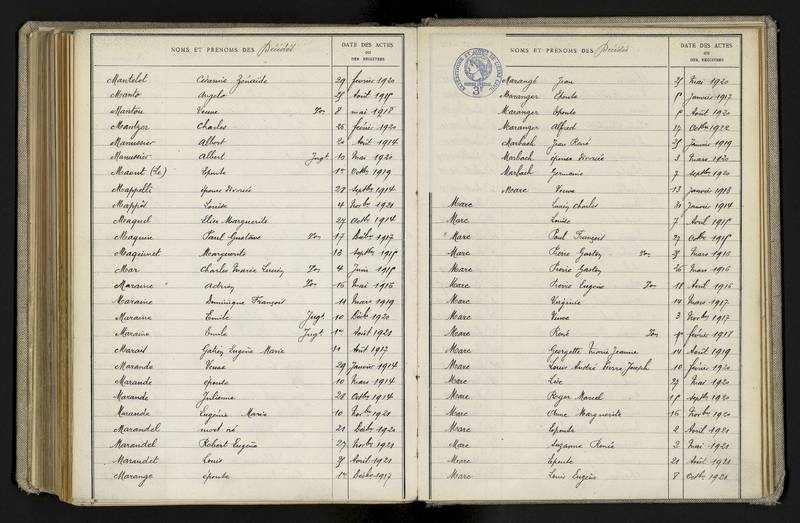 NOMS ET PRÉNOMS DES Décédés
DATE DES ACTES
OU
DES REGISTRES
Mantelet Césarine Zénaïde 29 février 1920
Manto Angelo 25 Août 1915
Mantou Veuve Ton 8 mai 1918
Mantzer Charles 26 février 1920
Manussier Albert 20 Août 1914
Manussier Albert Jugt 10 Mai 1920
Maout (Le) Epouse 1er Octbre 1919
Mappelli épouse divorcée 28 Septbre 1914
Louise 4 Novbre 1921
Maquel Elise Marguerite 27 Octbre 1914
Maquin Paul Gustave Ton 17 Décbre 1917
Maquinet Marguerite 13 Septbre 1915
Mar Charles Marie Ton 4 Juin 1915
Maraine Ton 16 Mai 1916
Maraine Dominique François 11 Mars 1919
Maraine Emile Jugt 10 Décbre 1920
Maraine Emile Jugt 1er Août 1921
Marais Eugène Marie Août 1917
Marande Veuve 29 Janvier 1914
Marande épouse 10 Mars 1914
Marande Julienne 28 Octbre 1914
Marande Eugénie Marie 10 Novbre 1921
Marandel mort né 21 Décbre 1920
Marandel Robert Eugène 27 Novbre 1921
Marandet Louis 25 Avril 1921
Marange épouse 1er Décbre 1917
NOMS ET PRÉNOMS DES Décédés
DATE DES ACTES
OU
DES REGISTRES
Marangé Jean 25 Mai 1920
Maranger Epouse Janvier 1917
Maranger Epouse Août 1920
Maranger Alfred Octbre 1922
Marbach Jean René 25 Janvier 1919
Marbach épouse divorcée 3 Mars 1920
Marbach Germaine 7 Septbre 1920
Marc Veuve 13 Janvier 1918
Marc Lucien Charles 20 Janvier 1914
Marc Louise 7 Avril 1915
Marc Paul François 27 Octbre 1915
Marc Pierre Gaston Ton 25 Mars 1916
Marc Pierre Gaston 26 Mars 1916
Marc Pierre Eugène Ton 18 Août 1916
Marc Virginie 14 Mars 1917
Marc Veuve 3 Novbre 1917
Marc René Ton 1er février 1918
Marc Georgette Marie Jeanne 14 Août 1919
Marc Louis André Pierre Joseph 10 février 1920
Marc 27 Mai 1920
Marc Roger Marcel 15 Septbre 1920
Marc Anne Marguerite 16 Novbre 1920
Marc Epouse 2 Avril 1921
Marc Suzanne Renée 2 Mai 1921
Marc Epouse 21 Août 1921
Marc Louis Eugène 8 Octbre 1921